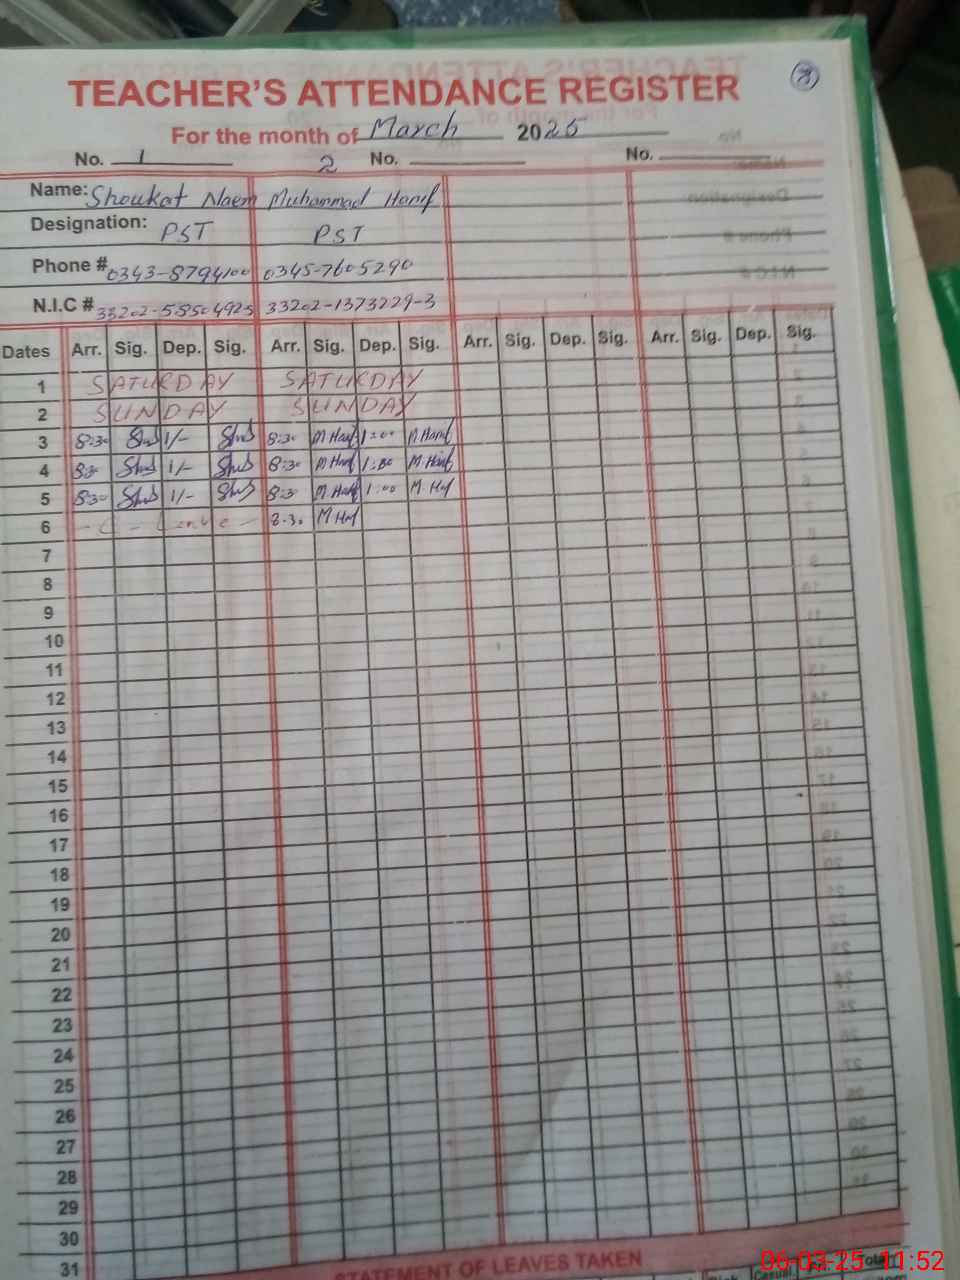 TEACHER'S ATTENDANCE REGISTER
For the month of March 2025
No. 1 2 No. No.
Name: Shoukat Naem Muhammad Hanif
Designation: PST PST
Phone # 0343-8794100 0345-7605290
N.I.C # 33202-5850492-5 33202-1373229-3
Dates Arr. Sig. Dep. Sig. Arr. Sig. Dep. Sig. Arr. Sig. Dep. Sig. Arr. Sig. Dep. Sig.
1 SATURDAY SATURDAY
2 SUNDAY SUNDAY
3 8:30 1/- 8:30 M Hanif 1:00 M Hanif
4 8:30 1/- 8:30 M Hanif 1:00 M. Hanif
5 8:30 1/- 8:30 M Hanif 1:00 M. Hnf
6 - C - Leave - 8:30 M Hnf
7
8
9
10
11
12
13
14
15
16
17
18
19
20
21
22
23
24
25
26
27
28
29
30
31
STATEMENT OF LEAVES TAKEN
Casual Total
06-03-25 11:52